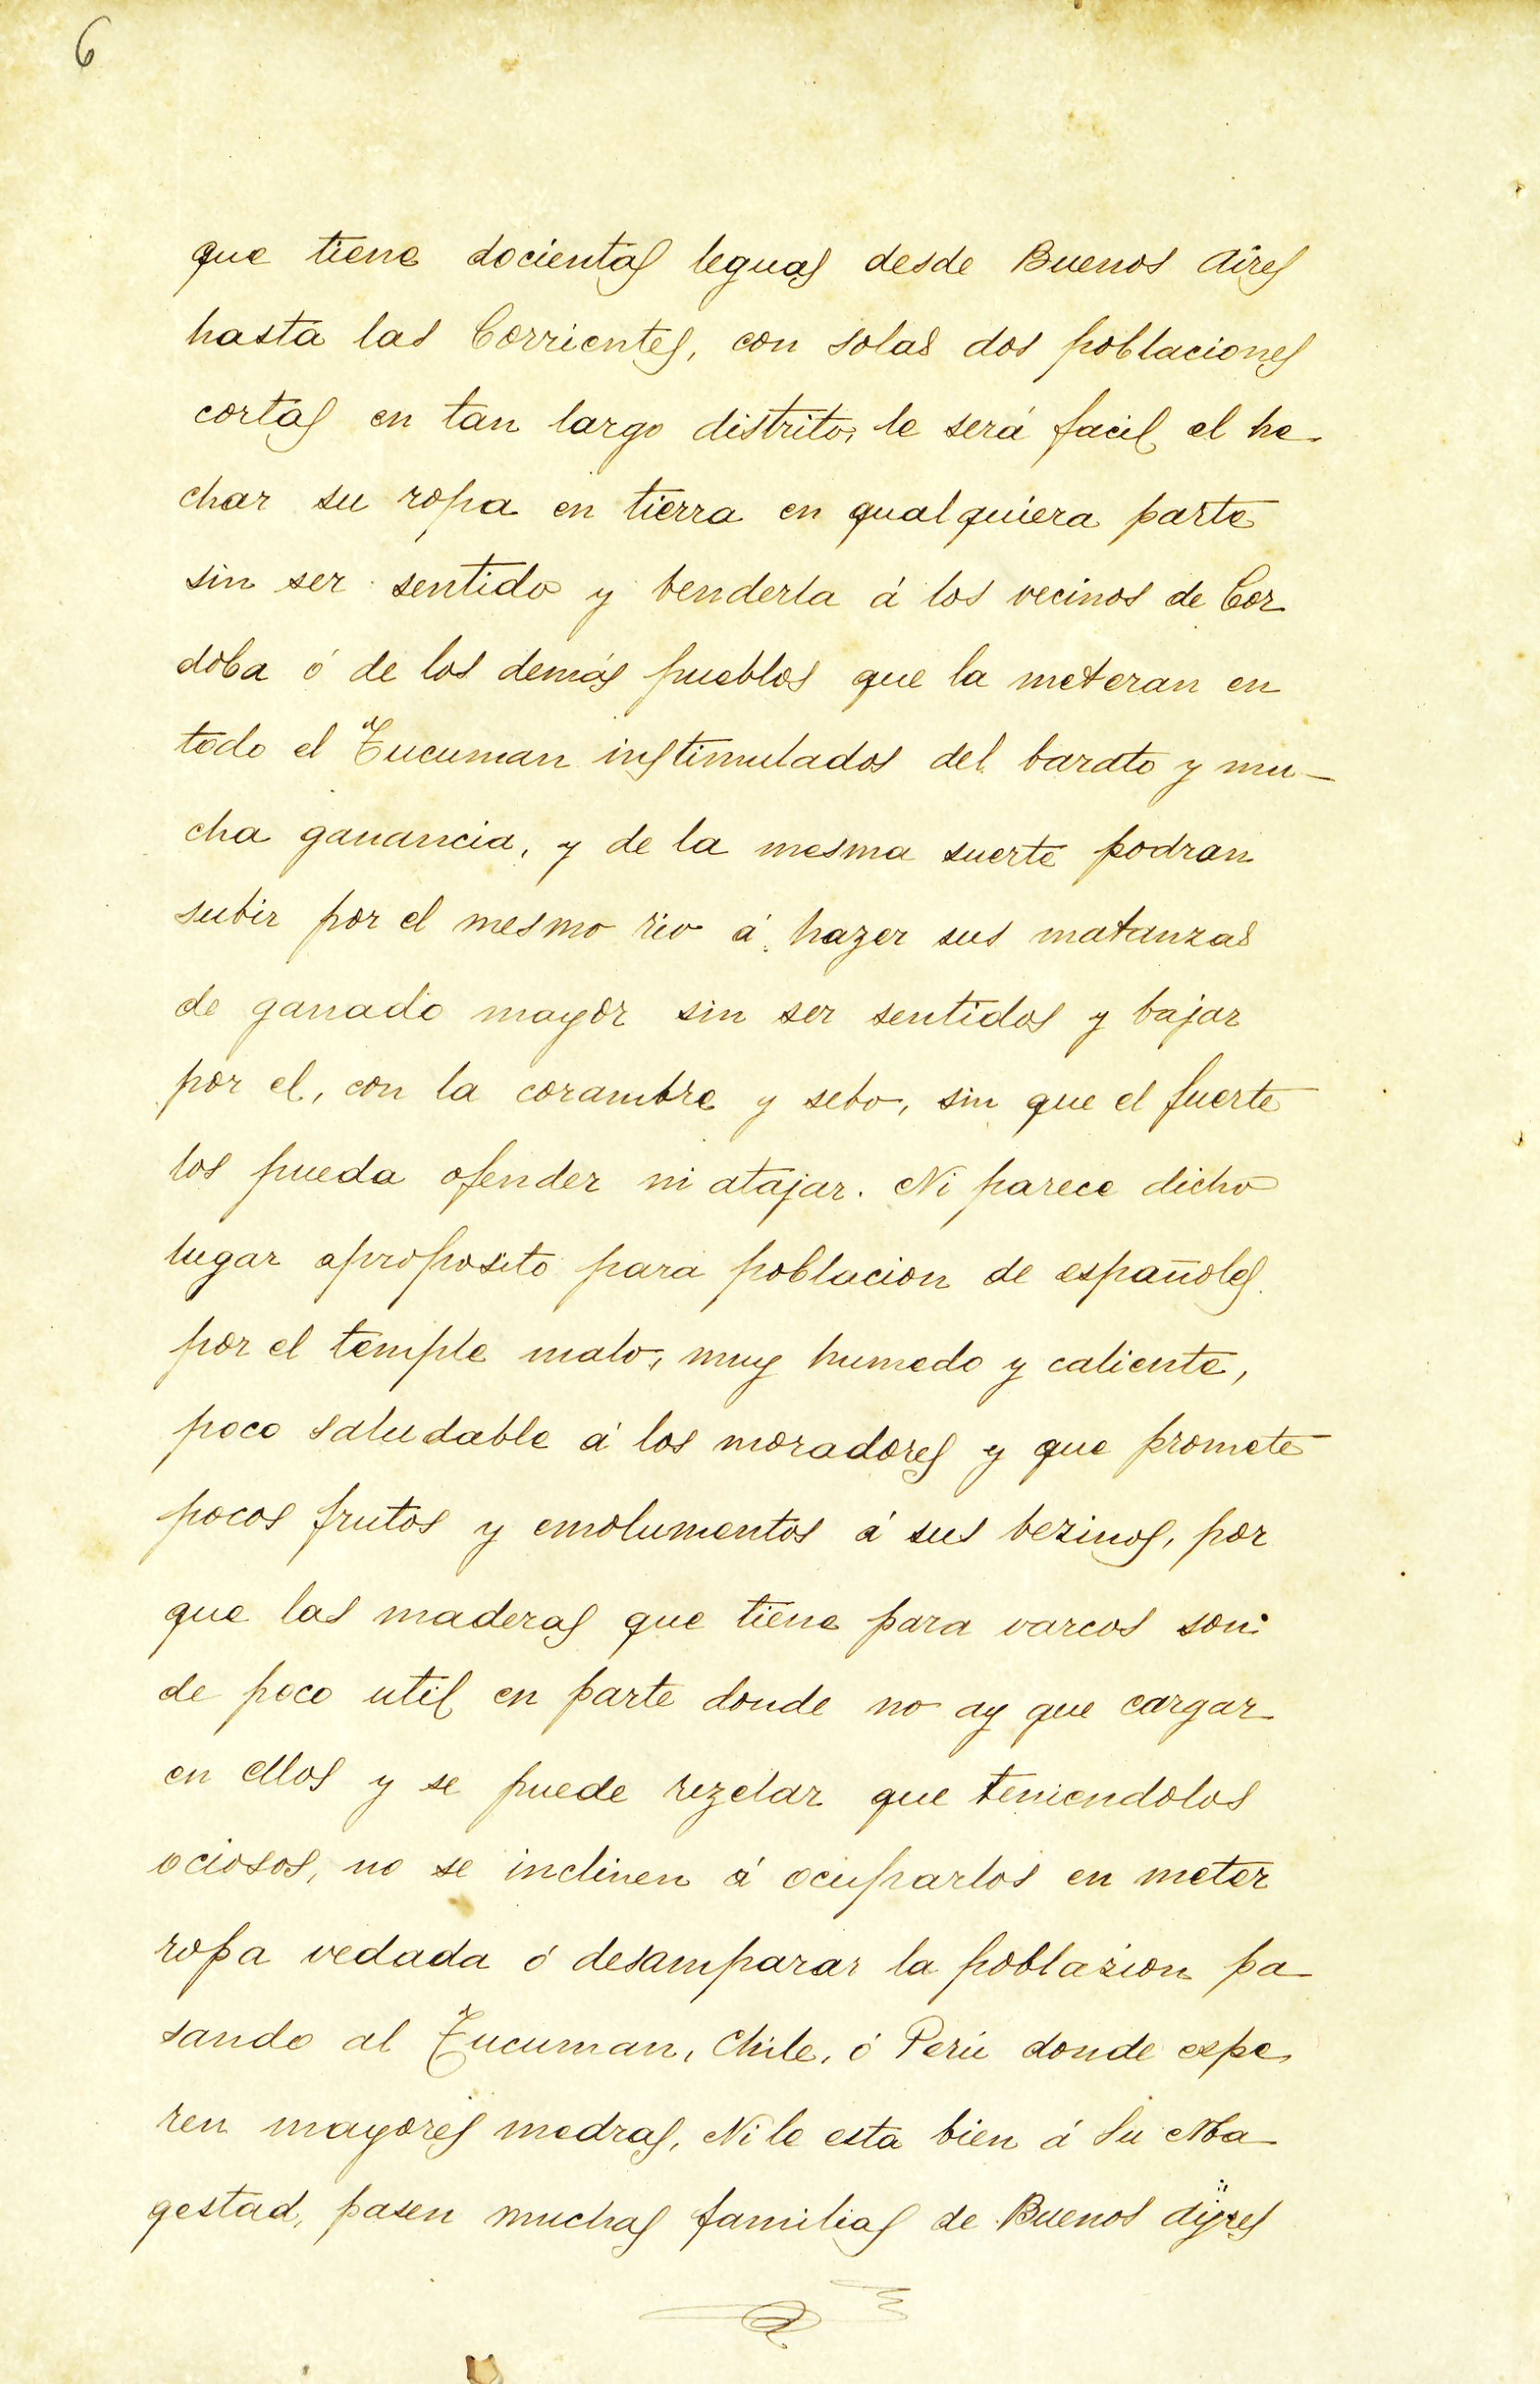 6
que tiene docientas leguas desde Buenos Aires
hasta las Corrientes, con solas dos poblaciones
cortas en tan largo distrito, le será facil el he-
char su ropa en tierra en qualquiera parte
sin ser sentido y benderla á los vecinos de Cor
doba ó de los demás pueblos que la meteran en
todo el Tucuman instimulados del barato y mu-
cha ganancia, y de la mesma suerte podran
subir por el mesmo rio á hazer sus matanzas
de ganado mayor sin ser sentidos y bajar
por el, con la corambre y sebo, sin que el fuerte
los pueda ofender ni atajar. Ni parece dicho
lugar aproposito para poblacion de españoles
por el temple malo, muy humedo y caliente,
poco saludable á los moradores y que promete
pocos frutos y emolumentos á sus bezinos, por
que las maderas que tiene para varcos son
de poco util en parte donde no ay que cargar
en ellos y se puede rezelar que teniendolos
ociosos, no se inclinen á ocuparlos en meter
ropa vedada ó desamparar la poblazion pa
sando al Tucuman, Chile, ó Perú donde espe
ren mayores medras, Ni le esta bien á Su Ma
gestad, pasen muchas familias de Buenos Aÿres